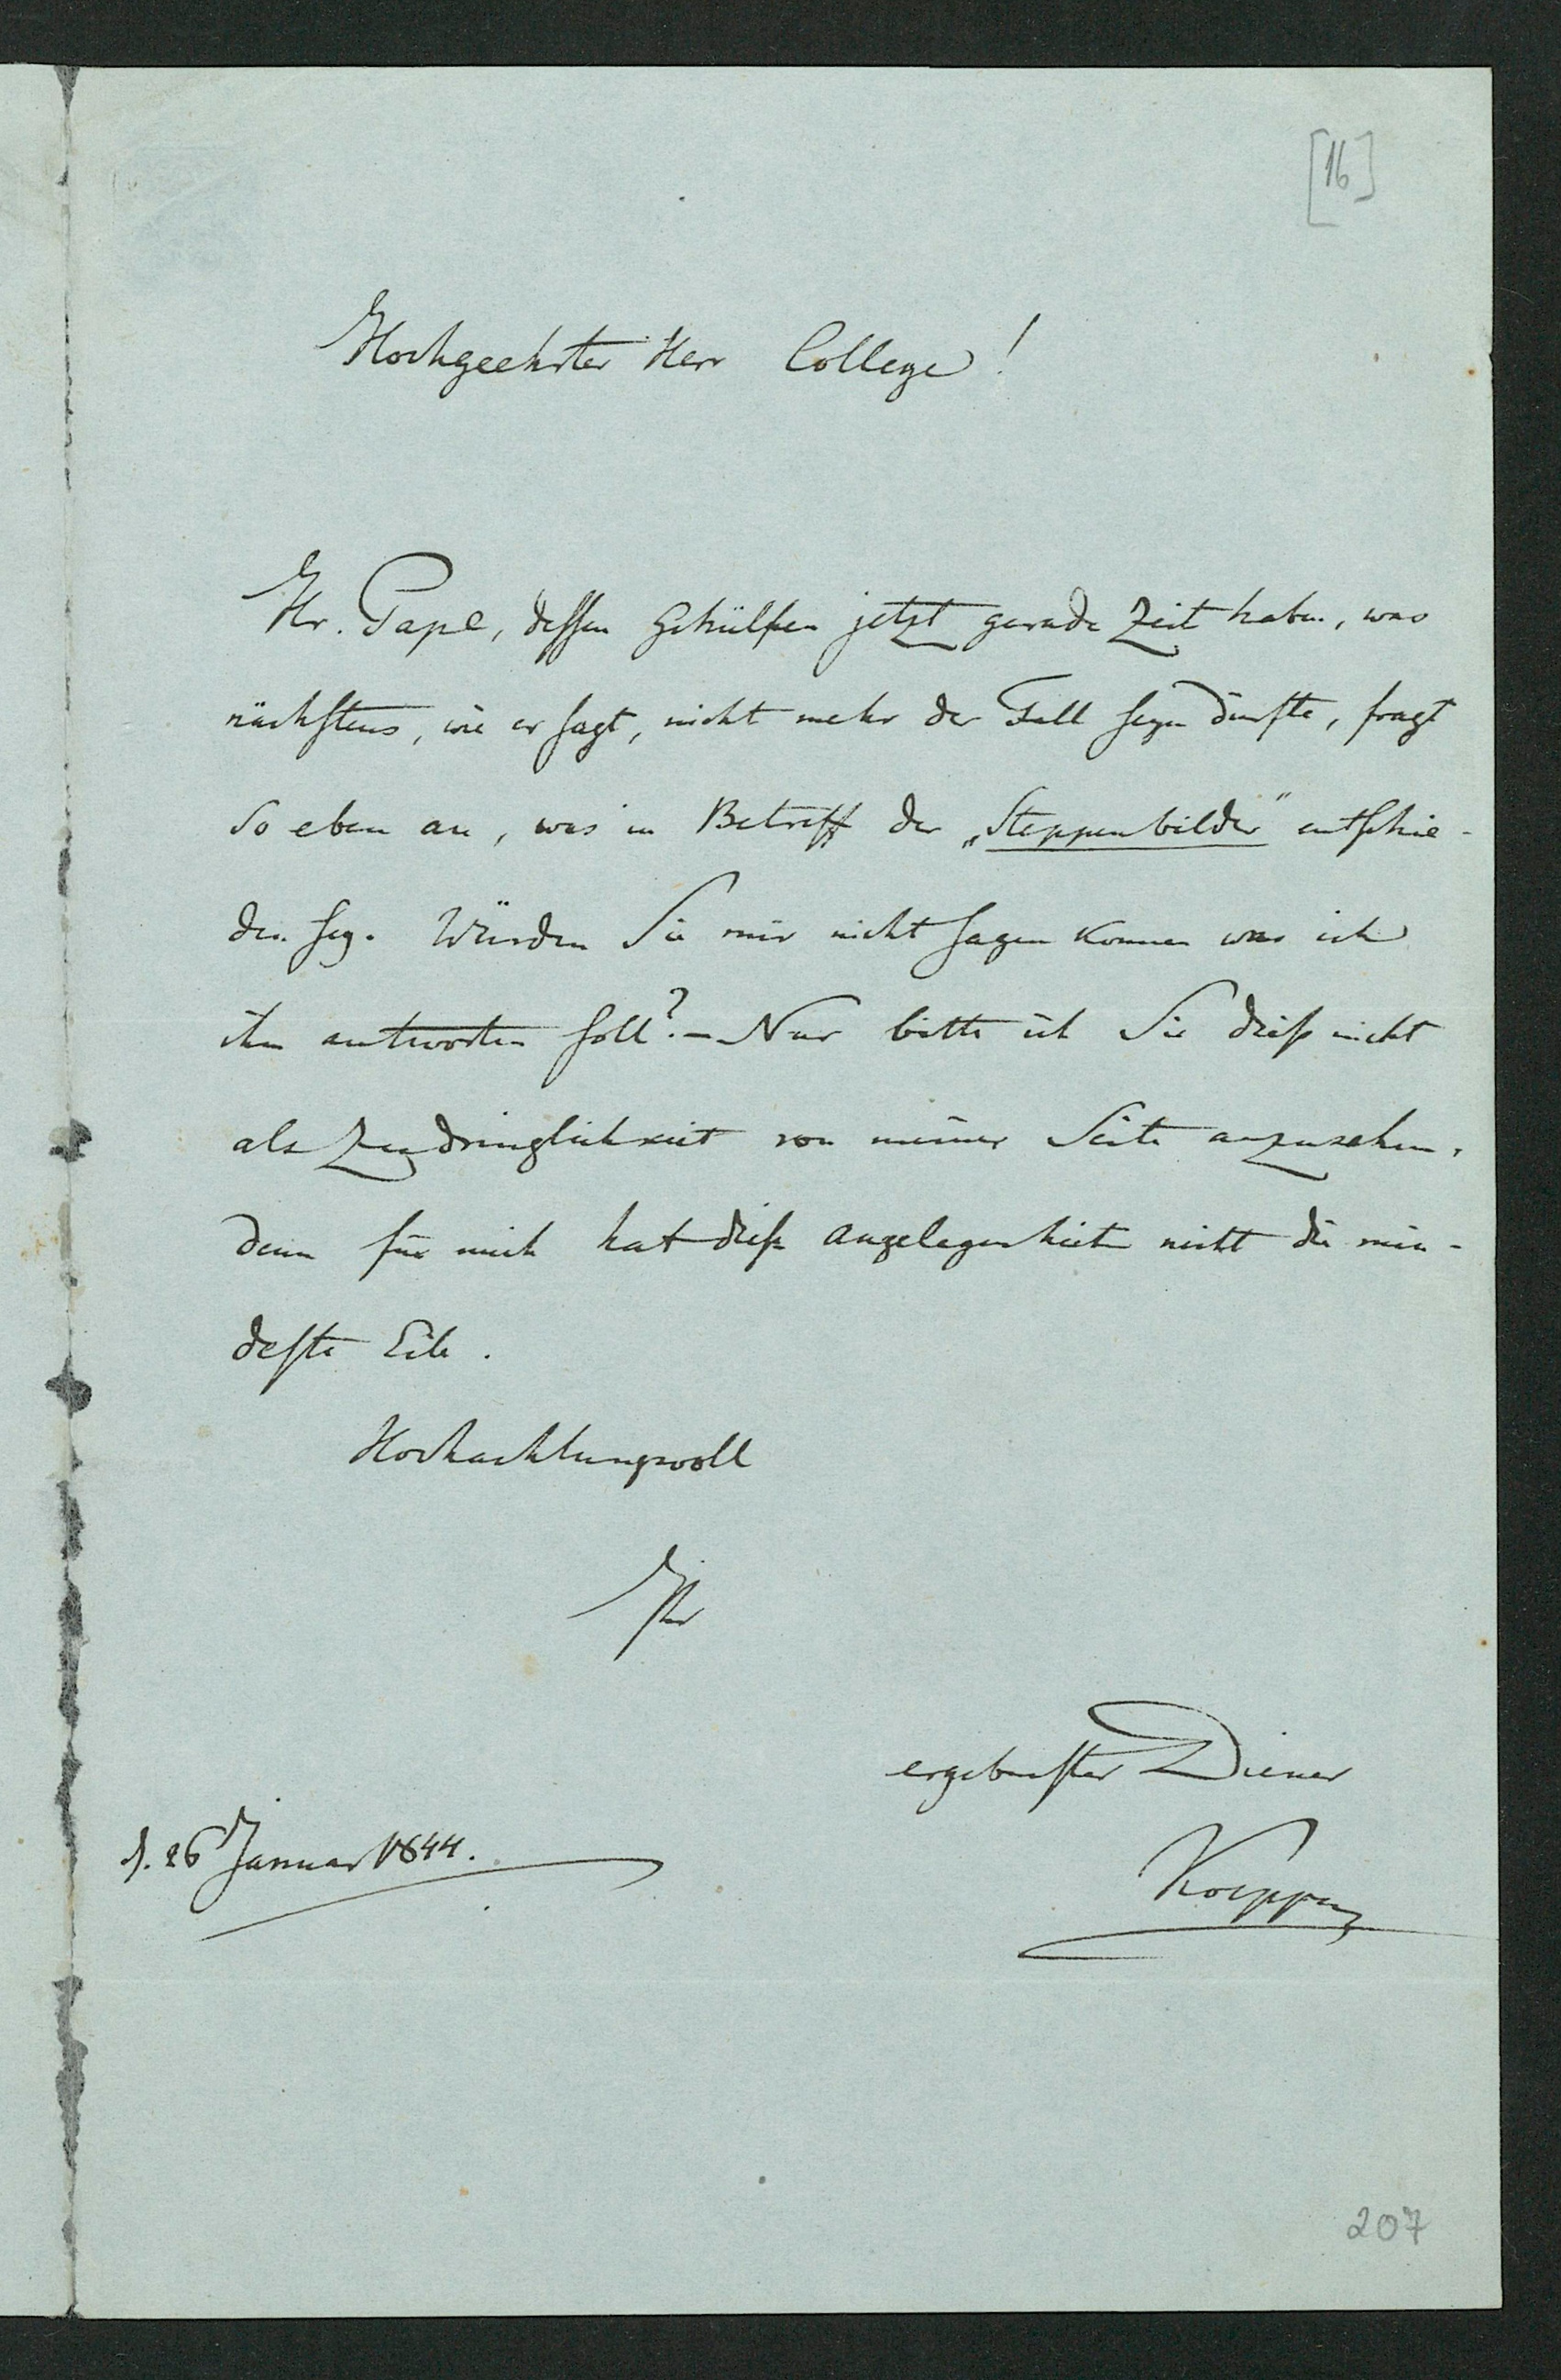 [16]
Hochgeehrter Herr College!
Hr. Pape, dessen Gehülfen jetzt gerade Zeit haben, was
nächstens, wie er sagt, nicht mehr der Fall seyn dürfte, fragt
so eben an, was in Betreff der „Steppenbilder" entschie-
den sey. Würden Sie mir nicht sagen können was ich
ihm antworten soll? - Nur bitte ich Sie dieß nicht
als Zudringlichkeit von meiner Seite anzusehen,
denn für mich hat diese Angelegenheit nicht die min-
deste Eile.
Hochachtungsvoll
Ihr
ergebenster Diener
d. 26 Januar 1844.
Koeppen
207